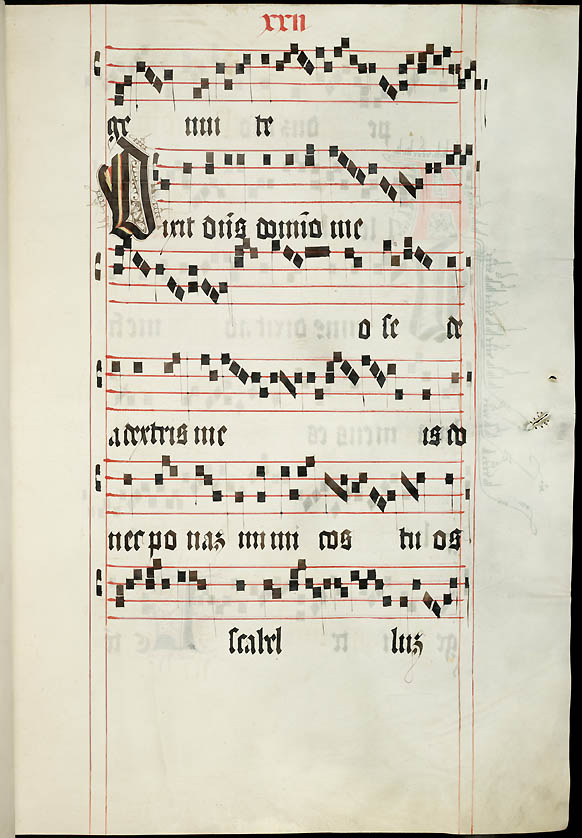 xxii
ge nui te
Dixit dn̄s domīo me
o se de
a dextris me is do
nec po naz inimi cos tu os
scabel luz